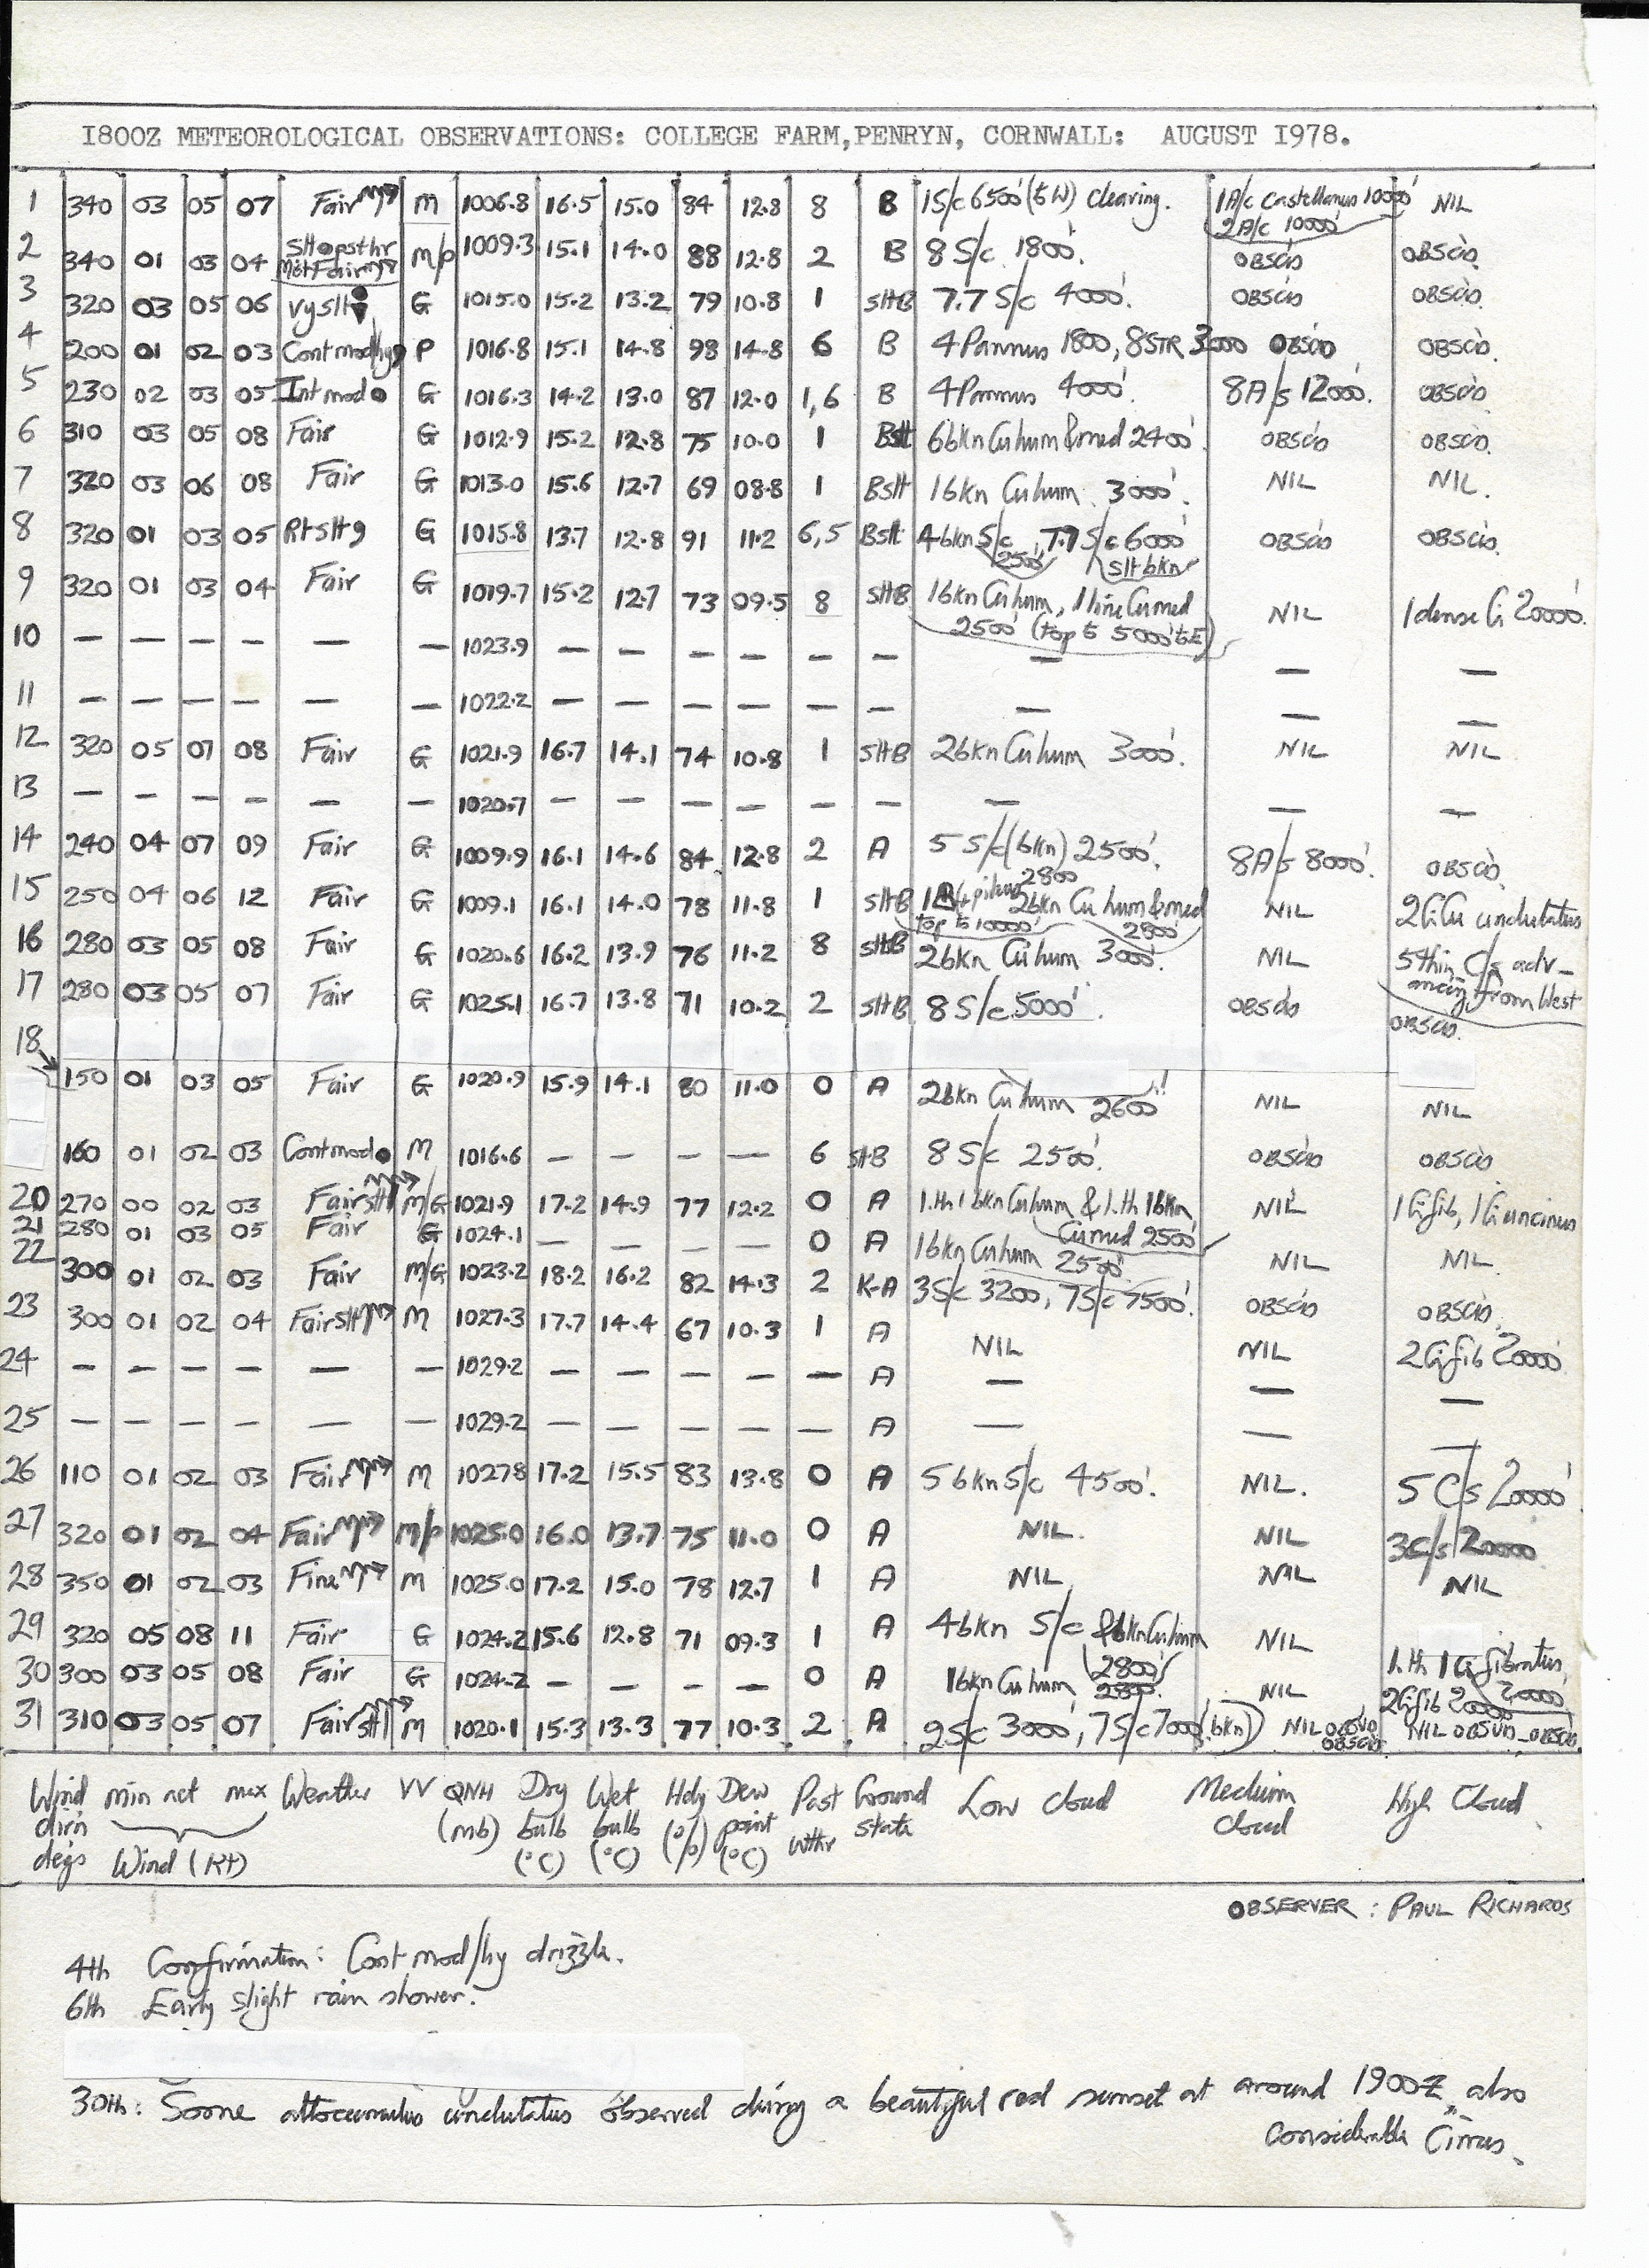 1800Z METEOROLOGICAL OBSERVATIONS: COLLEGE FARM,PENRYN, CORNWALL: AUGUST 1978.
1 340 03 05 07 Fair M 1006.8 16.5 15.0 84 12.8 8 B 1S/c 6500' (to W) clearing. 1A/c Castellanus 10000' NIL
2A/c 10000'
2 340 01 03 04 M/P 1009.3 15.1 14.0 88 12.8 2 B 8 S/c 1800'. OBSCD OBSCD.
3 320 03 05 06 vyslt G 1015.0 15.2 13.2 79 10.8 1 SltB 7.7 S/c 4000'. OBSCD OBSCD.
4 200 01 02 03 Cont mod/hy P 1016.8 15.1 14.8 98 14.8 6 B 4 Pannus 1800, 8 STR 3000 OBSCD OBSCD.
5 230 02 03 05 Int mod G 1016.3 14.2 13.0 87 12.0 1,6 B 4 Pannus 4000'. 8A/s 12000'. OBSCD
6 310 03 05 08 Fair G 1012.9 15.2 12.8 75 10.0 1 BSlt 6bkn Cu hum & med 2400' OBSCD OBSCD.
7 320 03 06 08 Fair G 1013.0 15.6 12.7 69 08.8 1 BSlt 1bkn Cu hum 3000'. NIL NIL.
8 320 01 03 05 Rt Slt G 1015.8 13.7 12.8 91 11.2 6,5 BSlt 4bkn S/c 7.7 S/c 6000' OBSCD OBSCD.
2500' Slt bkn
9 320 01 03 04 Fair G 1019.7 15.2 12.7 73 09.5 8 SltB 1bkn Cu hum, 1 line Cu med NIL 1 dense Ci 20000'.
2500' (top to 5000' to E)
10 — — — — — — 1023.9 — — — — — — — — —
11 — — — — — — 1022.2 — — — — — — — — —
12 320 05 07 08 Fair G 1021.9 16.7 14.1 74 10.8 1 SltB 2bkn Cu hum 3000'. NIL NIL
13 — — — — — — 1020.7 — — — — — — — — —
14 240 04 07 09 Fair G 1009.9 16.1 14.6 84 12.8 2 A 5 S/c (bkn) 2500'. 8A/s 8000'. OBSCD.
15 250 04 06 12 Fair G 1009.1 16.1 14.0 78 11.8 1 SltB 2800 2bkn Cu hum & med NIL 2CiCu undulatus
top to 10000' 2800'
16 280 03 05 08 Fair G 1020.6 16.2 13.9 76 11.2 8 SltB 2bkn Cu hum 3000'. NIL 5 thin C/s adv-
ancing from West
17 280 03 05 07 Fair G 1025.1 16.7 13.8 71 10.2 2 SltB 8 S/c 5000'. OBSCD OBSCD.
18 150 01 03 05 Fair G 1020.9 15.9 14.1 80 11.0 0 A 2bkn Cu hum 2600'!! NIL NIL
160 01 02 03 Cont mod M 1016.6 — — — — 6 SltB 8 S/c 2500'. OBSCD OBSCD
20 270 00 02 03 Fair slt M/G 1021.9 17.2 14.9 77 12.2 0 A 1.th 1bkn Cu hum & 1.th 1bkn NIL 1Ci fib, 1Ci uncinus
Cu med 2500'
21 280 01 03 05 Fair G 1024.1 — — — — 0 A 1bkn Cu hum 2500' NIL NIL.
22 300 01 02 03 Fair M/G 1023.2 18.2 16.2 82 14.3 2 K-A 3S/c 3200, 7S/c 7500'. OBSCD OBSCD.
23 300 01 02 04 Fair slt M 1027.3 17.7 14.4 67 10.3 1 A NIL NIL 2Ci fib 20000'
24 — — — — — — 1029.2 — — — — — A — — —
25 — — — — — — 1029.2 — — — — — A — — —
26 110 01 02 03 Fair M 10278 17.2 15.5 83 13.8 0 A 5 bkn S/c 4500'. NIL. 5 C/s 20000'
27 320 01 02 04 Fair M/P 1025.0 16.0 13.7 75 11.0 0 A NIL. NIL 3C/s 20000
28 350 01 02 03 Fine M 1025.0 17.2 15.0 78 12.7 1 A NIL NIL NIL
29 320 05 08 11 Fair G 1024.2 15.6 12.8 71 09.3 1 A 4bkn S/c & 1bkn Cu hum NIL 1.th 1Ci fibratus
2800' 20000
30 300 03 05 08 Fair G 1024.2 — — — — 0 A 1bkn Cu hum 2800'. NIL 2Ci fib 20000
31 310 03 05 07 Fair slt M 1020.1 15.3 13.3 77 10.3 2 A 2S/c 3000', 7S/c 7000 (bkn) NIL OBSVD OBSCD NIL OBSVD-OBSCD.
Wind dirn degs min net max Wind (Kt) Weather VV QNH (mb) Dry bulb (°C) Wet bulb (°C) Hdy (%) Dew point (°C) Past wthr Ground state Low cloud Medium cloud High Cloud
OBSERVER : PAUL RICHARDS
4th Confirmation: Cont mod/hy drizzle.
6th Early slight rain shower.
30th: Some altocumulus undulatus observed during a beautiful red sunset at around 1900Z, also
considerable Cirrus.